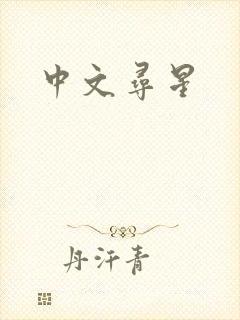 中文尋星
丹汗青